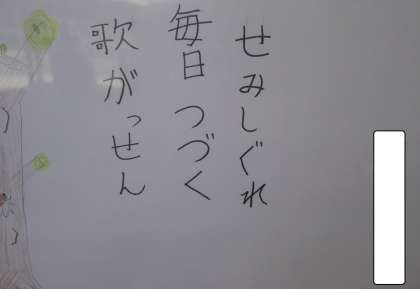 せみしぐれ
毎日つづく
歌がっせん